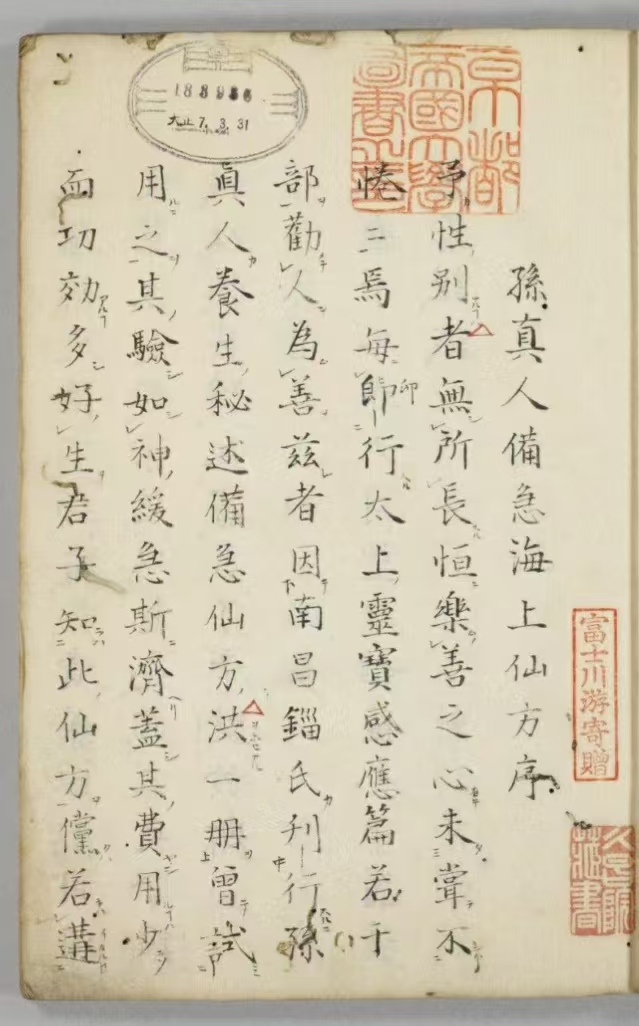 京都
帝國大學
圖書之印
188986
大正 7. 3. 31
孫真人備急海上仙方序
予性別者無所長恒樂善之心未甞不
惓〻焉每印行太上靈寶感應篇若干
部勸人為善茲者因南昌錙氏刋行孫
眞人養生秘述備急仙方洪一冊曾試
用之其驗如神緩急斯濟蓋其費用少
而功効多好生君子知此仙方儻若遘
富士川游寄贈
藏書